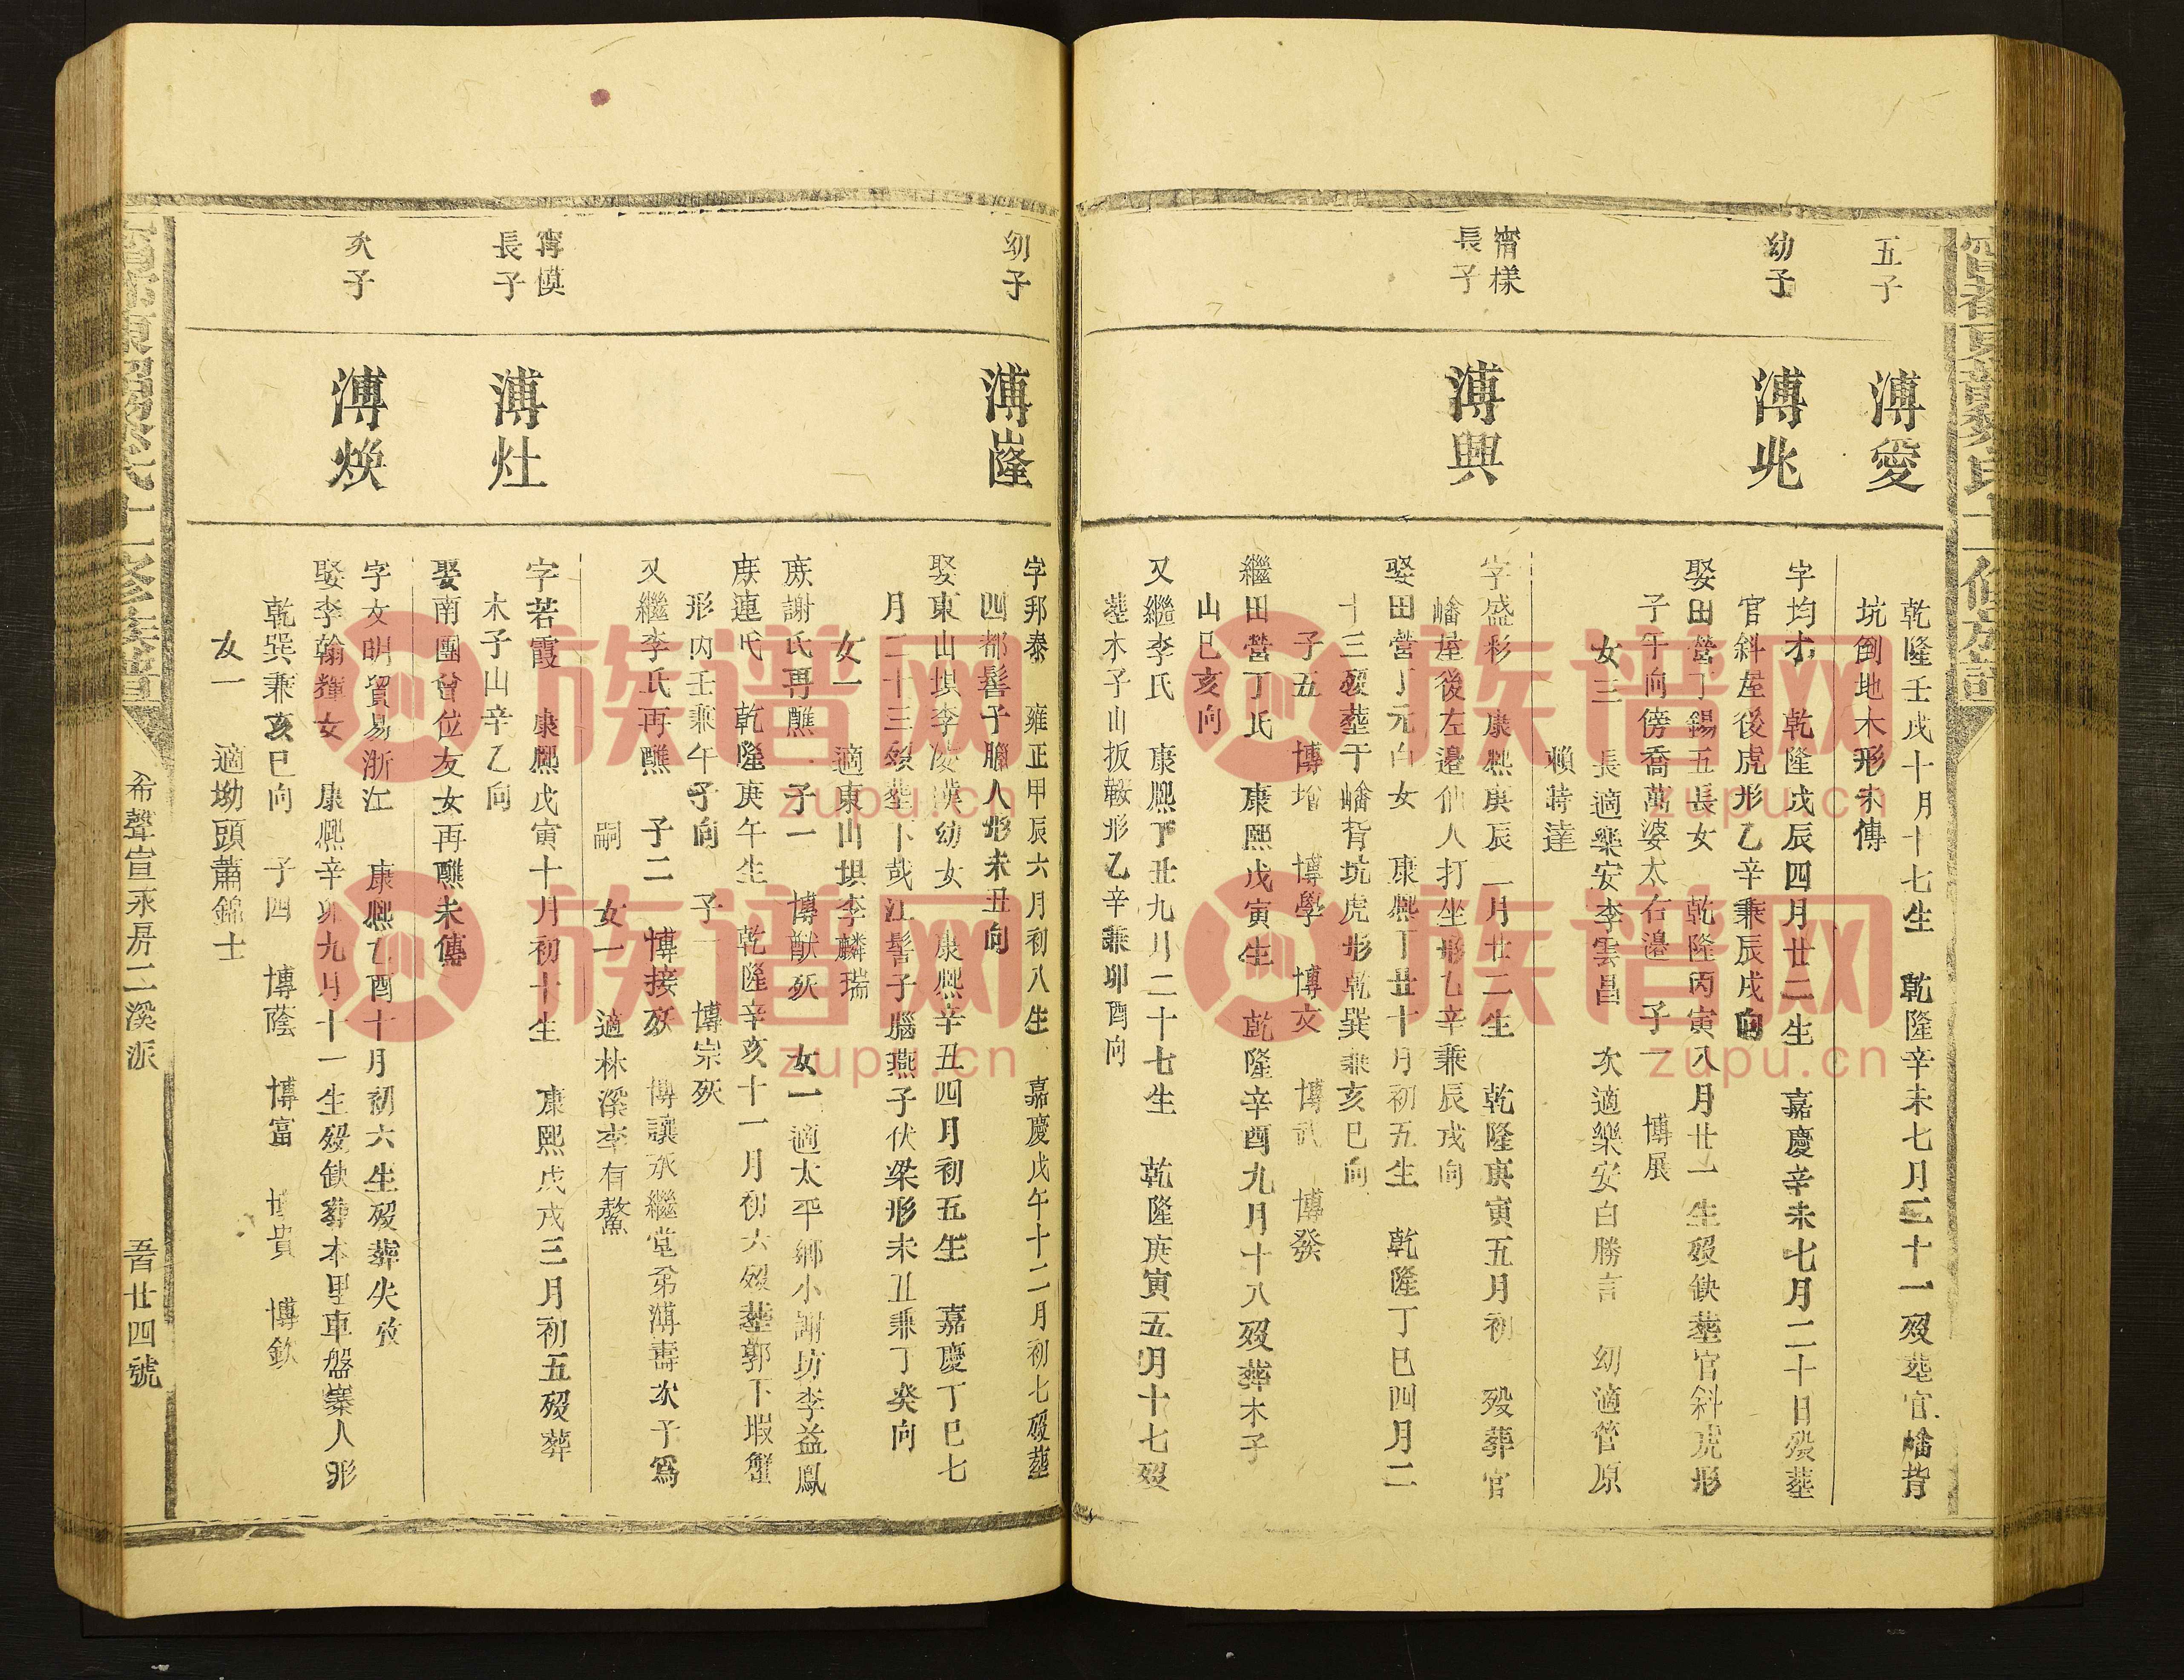 五子
溥愛
乾隆壬戌十月十七生 乾隆辛未七月三十一歿塟官嶓背
坑倒地木形未傳
幼子
溥兆
字均才 乾隆戊辰四月廿二生 嘉慶辛未七月二十日歿塟
官斜屋後虎形乙辛兼辰戌向
娶田營丁錫五長女 乾隆丙寅八月廿一生歿缺塟官斜虎形
子午向傍喬萬婆太右邊 子一 博展
女三 長適樂安李雲昌 次適樂安白勝言 幼適管原
賴蒔達
甯樣
長子
溥興
字盛彩 康熙庚辰一月廿二生 乾隆庚寅五月初 歿葬官
嶓屋後左邊仙人打坐形乙辛兼辰戌向
娶田營丁元白女 康熙丁丑十月初五生 乾隆丁巳四月二
十三歿塟于嶓背坑虎形乾巽兼亥巳向
子五 博增 博學 博文 博武 博發
繼田營丁氏 康熙戊寅生 乾隆辛酉九月十八歿葬木子
山巳亥向
又繼李氏 康熙丁丑九月二十七生 乾隆庚寅五月十七歿
塟木子山扳鞍形乙辛兼卯酉向
幼子
溥嶐
字邦泰 雍正甲辰六月初八生 嘉慶戊午十二月初七歿塟
四都髻子腦人形未丑向
娶東山垻李凌漢幼女 康熙辛丑四月初五生 嘉慶丁巳七
月二十三歿塟下㦲江髻子腦燕子伏梁形未丑兼丁癸向
女一 適東山垻李麟瑞
庶謝氏再醮 子一 博猷殀 女一 適太平鄉小謝坊李益鳳
庶連氏 乾隆庚午生 乾隆辛亥十一月初六歿塟郭下瑕蟹
形丙壬兼午子向 子一 博崇殀
又繼李氏再醮 子二 博接殀 博讓承繼堂弟溥壽次子爲
嗣 女一 適林溪李有鰲
甯謨
長子
溥灶
字若霞 康熙戊寅十月初十生 康熙戊戌三月初五歿葬
木子山辛乙向
娶南團曾位友女再醮未傳
次子
溥煥
字文明貿易浙江 康熙乙酉十月初六生歿葬失攷
娶李翰輝女 康熙辛卯九月十一生歿缺葬本里車盤寨人形
乾巽兼亥巳向 子四 博蔭 博富 博貴 博欽
女一 適坳頭蕭錦士
希聲宣承房二溪派
五百廿四號
族谱网
zupu.cn
族谱网
zupu.cn
族谱网
zupu.cn
族谱网
zupu.cn